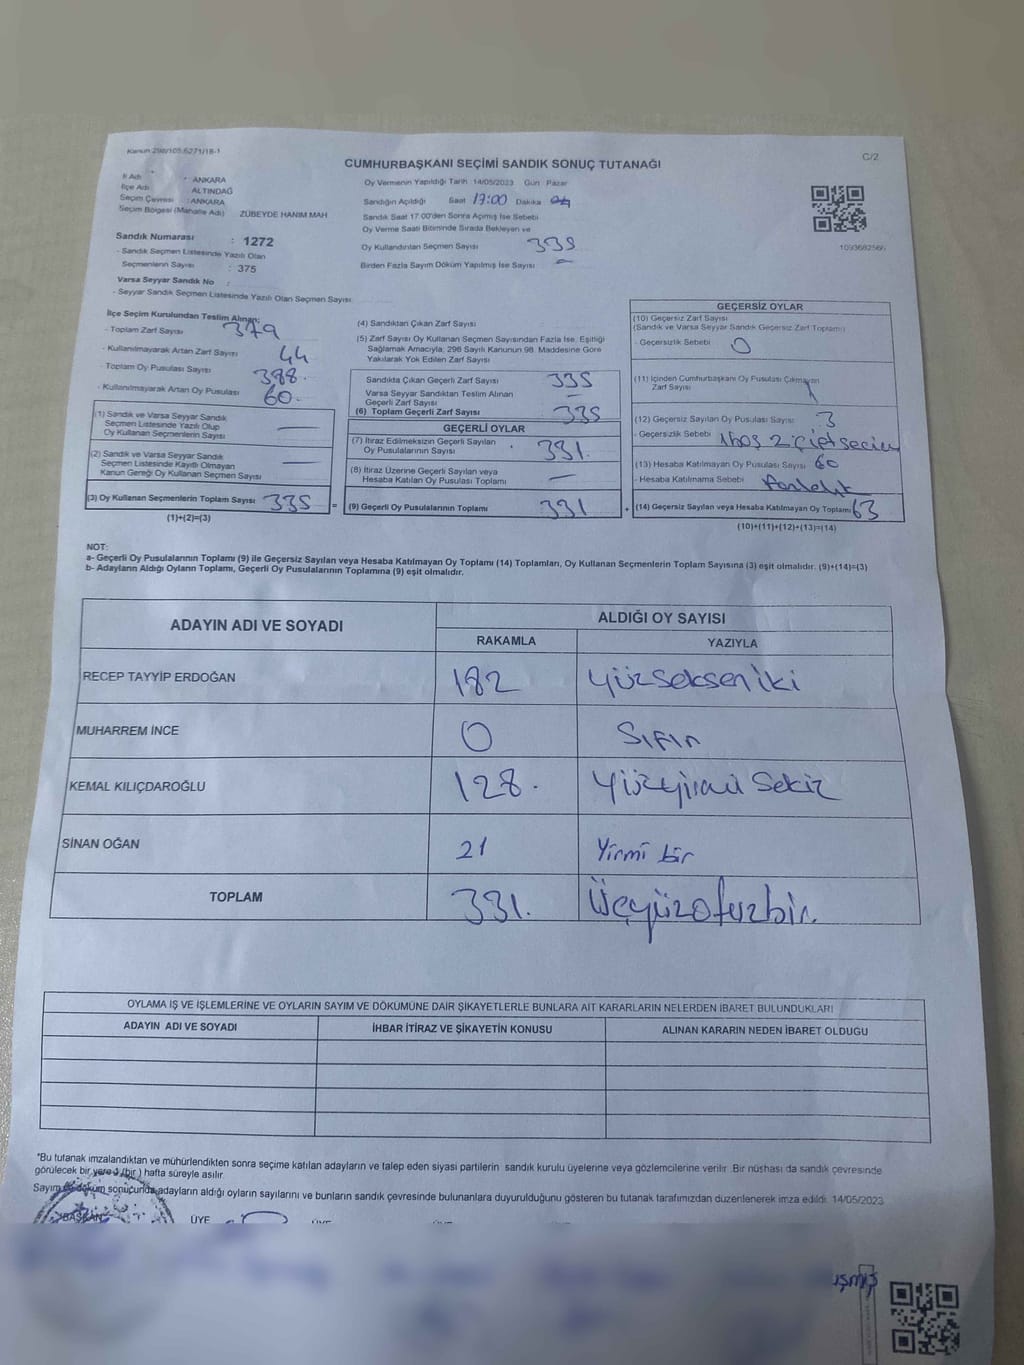 Kanun:298/105,6271/18-1
CUMHURBAŞKANI SEÇİMİ SANDIK SONUÇ TUTANAĞI
C/2
İl Adı : ANKARA
İlçe Adı : ALTINDAĞ
Seçim Çevresi : ANKARA
Seçim Bölgesi (Mahalle Adı) ZÜBEYDE HANIM MAH
Sandık Numarası : 1272
- Sandık Seçmen Listesinde Yazılı Olan
Seçmenlerin Sayısı : 375
Varsa Seyyar Sandık No :
- Seyyar Sandık Seçmen Listesinde Yazılı Olan Seçmen Sayısı
Oy Vermenin Yapıldığı Tarih :14/05/2023 Gün : Pazar
Sandığın Açıldığı Saat 17:00 Dakika
Sandık Saat 17.00'den Sonra Açımış İse Sebebi
Oy Verme Saati Bitiminde Sırada Bekleyen ve
Oy Kullandırılan Seçmen Sayısı 335
Birden Fazla Sayım Döküm Yapılmış İse Sayısı –
1093682566
İlçe Seçim Kurulundan Teslim Alınan;
- Toplam Zarf Sayısı 379
- Kullanılmayarak Artan Zarf Sayısı 44
- Toplam Oy Pusulası Sayısı 398.
- Kullanılmayarak Artan Oy Pusulası 60.
(1) Sandık ve Varsa Seyyar Sandık
Seçmen Listesinde Yazılı Olup
Oy Kullanan Seçmenlerin Sayısı —
(2) Sandık ve Varsa Seyyar Sandık
Seçmen Listesinde Kayıtlı Olmayan
Kanun Gereği Oy Kullanan Seçmen Sayısı —
(3) Oy Kullanan Seçmenlerin Toplam Sayısı 335
(1)+(2)=(3)
(4) Sandıktan Çıkan Zarf Sayısı :
(5) Zarf Sayısı Oy Kullanan Seçmen Sayısından Fazla İse, Eşitliği
Sağlamak Amacıyla, 298 Sayılı Kanunun 98. Maddesine Göre
Yakılarak Yok Edilen Zarf Sayısı
Sandıkta Çıkan Geçerli Zarf Sayısı 335
Varsa Seyyar Sandıktan Teslim Alınan
Geçerli Zarf Sayısı —
(6) Toplam Geçerli Zarf Sayısı 335
GEÇERLİ OYLAR
(7) İtiraz Edilmeksizin Geçerli Sayılan
Oy Pusulalarının Sayısı 331.
(8) İtiraz Üzerine Geçerli Sayılan veya
Hesaba Katılan Oy Pusulası Toplamı —
= (9) Geçerli Oy Pusulalarının Toplamı 331
GEÇERSİZ OYLAR
(10) Geçersiz Zarf Sayısı
(Sandık ve Varsa Seyyar Sandık Geçersiz Zarf Toplamı)
- Geçersizlik Sebebi 0
(11) İçinden Cumhurbaşkanı Oy Pusulası Çıkmayan
Zarf Sayısı 1
(12) Geçersiz Sayılan Oy Pusulası Sayısı 3
- Geçersizlik Sebebi 1boş 2 çift seçim
(13) Hesaba Katılmayan Oy Pusulası Sayısı 60
- Hesaba Katılmama Sebebi
+ (14) Geçersiz Sayılan veya Hesaba Katılmayan Oy Toplamı 63
(10)+(11)+(12)+(13)=(14)
NOT:
a- Geçerli Oy Pusulalarının Toplamı (9) ile Geçersiz Sayılan veya Hesaba Katılmayan Oy Toplamı (14) Toplamları, Oy Kullanan Seçmenlerin Toplam Sayısına (3) eşit olmalıdır. (9)+(14)=(3)
b- Adayların Aldığı Oyların Toplamı, Geçerli Oy Pusulalarının Toplamına (9) eşit olmalıdır.
ADAYIN ADI VE SOYADI
ALDIĞI OY SAYISI
RAKAMLA YAZIYLA
RECEP TAYYİP ERDOĞAN 182 Yüzseksen iki
MUHARREM İNCE 0 Sıfır
KEMAL KILIÇDAROĞLU 128. Yüzyirmi Sekiz
SİNAN OĞAN 21 Yirmi bir
TOPLAM 331. Üçyüzotuzbir.
OYLAMA İŞ VE İŞLEMLERİNE VE OYLARIN SAYIM VE DÖKÜMÜNE DAİR ŞİKAYETLERLE BUNLARA AİT KARARLARIN NELERDEN İBARET BULUNDUKLARI
ADAYIN ADI VE SOYADI İHBAR İTİRAZ VE ŞİKAYETİN KONUSU ALINAN KARARIN NEDEN İBARET OLDUĞU
"Bu tutanak imzalandıktan ve mühürlendikten sonra seçime katılan adayların ve talep eden siyasi partilerin sandık kurulu üyelerine veya gözlemcilerine verilir. Bir nüshası da sandık çevresinde
görülecek bir yere 1 (bir) hafta süreyle asılır.
Sayım ve döküm sonucunda adayların aldığı oyların sayılarını ve bunların sandık çevresinde bulunanlara duyurulduğunu gösteren bu tutanak tarafımızdan düzenlenerek imza edildi. 14/05/2023
BAŞKAN ÜYE ÜYE